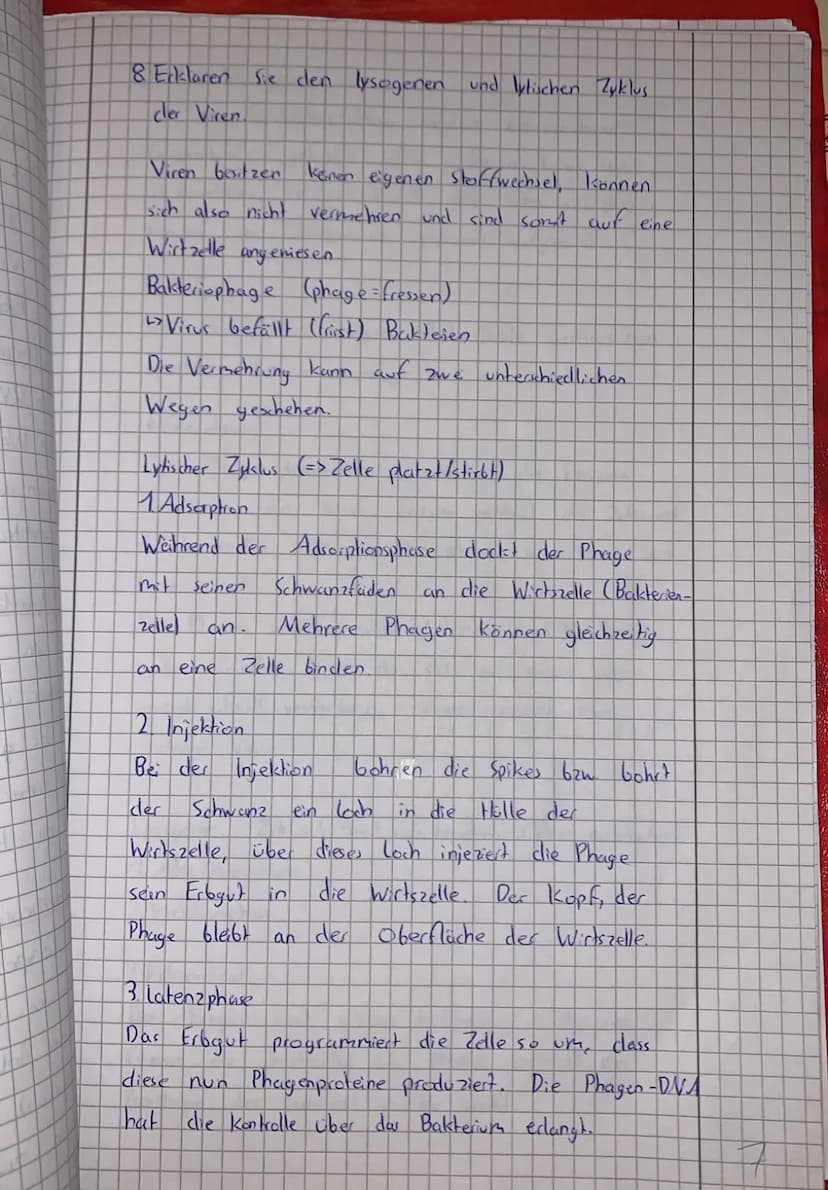 8 Erklären Sie den lysogenen und lytischen Zyklus
der Viren.
Viren besitzen keinen eigenen Stoffwechsel, können
sich also nicht vermehren und sind somit auf eine
Wirtzelle angewiesen
Bakteriophage (phage=fressen)
↳ Virus befällt (frisst) Bakterien
Die Vermehrung kann auf zwei unterschiedlichen
Wegen geschehen.
Lytischer Zyklus (=> Zelle platzt/stirbt)
1 Adsorption
Während der Adsorptionsphase dockt der Phage
mit seinen Schwanzfäden an die Wirtszelle (Bakterien-
zelle) an. Mehrere Phagen können gleichzeitig
an eine Zelle binden.
2 Injektion
Bei der Injektion bohren die Spikes bzw bohrt
der Schwanz ein Loch in die Hülle der
Wirtszelle, über dieses Loch injeziert die Phage
sein Erbgut in die Wirtszelle. Der Kopf, der
Phage bleibt an der Oberfläche der Wirtszelle.
3 Latenzphase
Das Erbgut programmiert die Zelle so um, dass
diese nun Phagenproteine produziert. Die Phagen-DNA
hat die Kontrolle über das Bakterium erlangt.
7